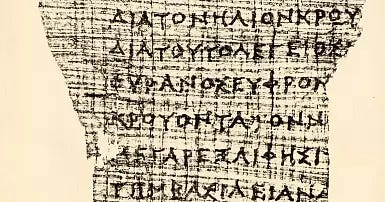 ΔΙΑΤΟΝΗΛΙΟΝΚΡΟΥ
ΔΙΑΤΟΥΤΟΛΕΓΕΙΟΣ
ΟΥΡΑΝΟΣΕΥΦΡΟΝ
ΚΡΟΥΟΝΤΑ ΟΝΝ
ΔΕΓΑΡΕΞΑΙΦΗΣΙ
ΤΩΜΒΑΣΙΛΕΙΑΝ